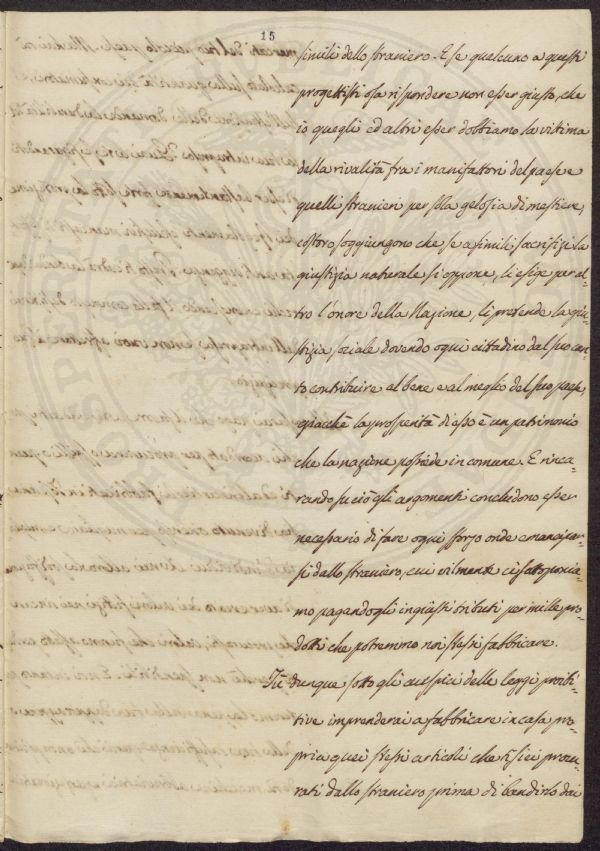 15
simili dello straniero. E se qualcuno a questi
progettisti osa rispondere non esser giusto, che
io quegli ed altri esser dobbiamo la vittima
della rivalità fra i manifattori del paese e
quelli stranieri per sola gelosia di mestiere,
costoro soggiungono che se a simili sacrifizi la
giustizia naturale si oppone, li esige per al-
tro l'onore della Nazione, li pretende la giu-
stizia soziale dovendo ogni cittadino dal suo can-
to contribuire al bene e al meglio del suo paese,
giacchè la prosperità di esso è un patrimonio
che la nazione possiede in comune. E rinca-
rando su ciò gli argomenti concludono esser
necessario di fare ogni sforzo onde emancipar-
si dallo straniero, cui vilmente ci sottoponia-
mo pagandogli ingiusti tributi per mille pro-
dotti che potremmo noi stessi fabbricare.
Tu dunque sotto gli auspici delle leggi proibi-
tive imprenderai a fabbricare in casa pro-
pria quei stessi articoli che ti siei procu-
rati dallo straniero prima di bandirlo dai